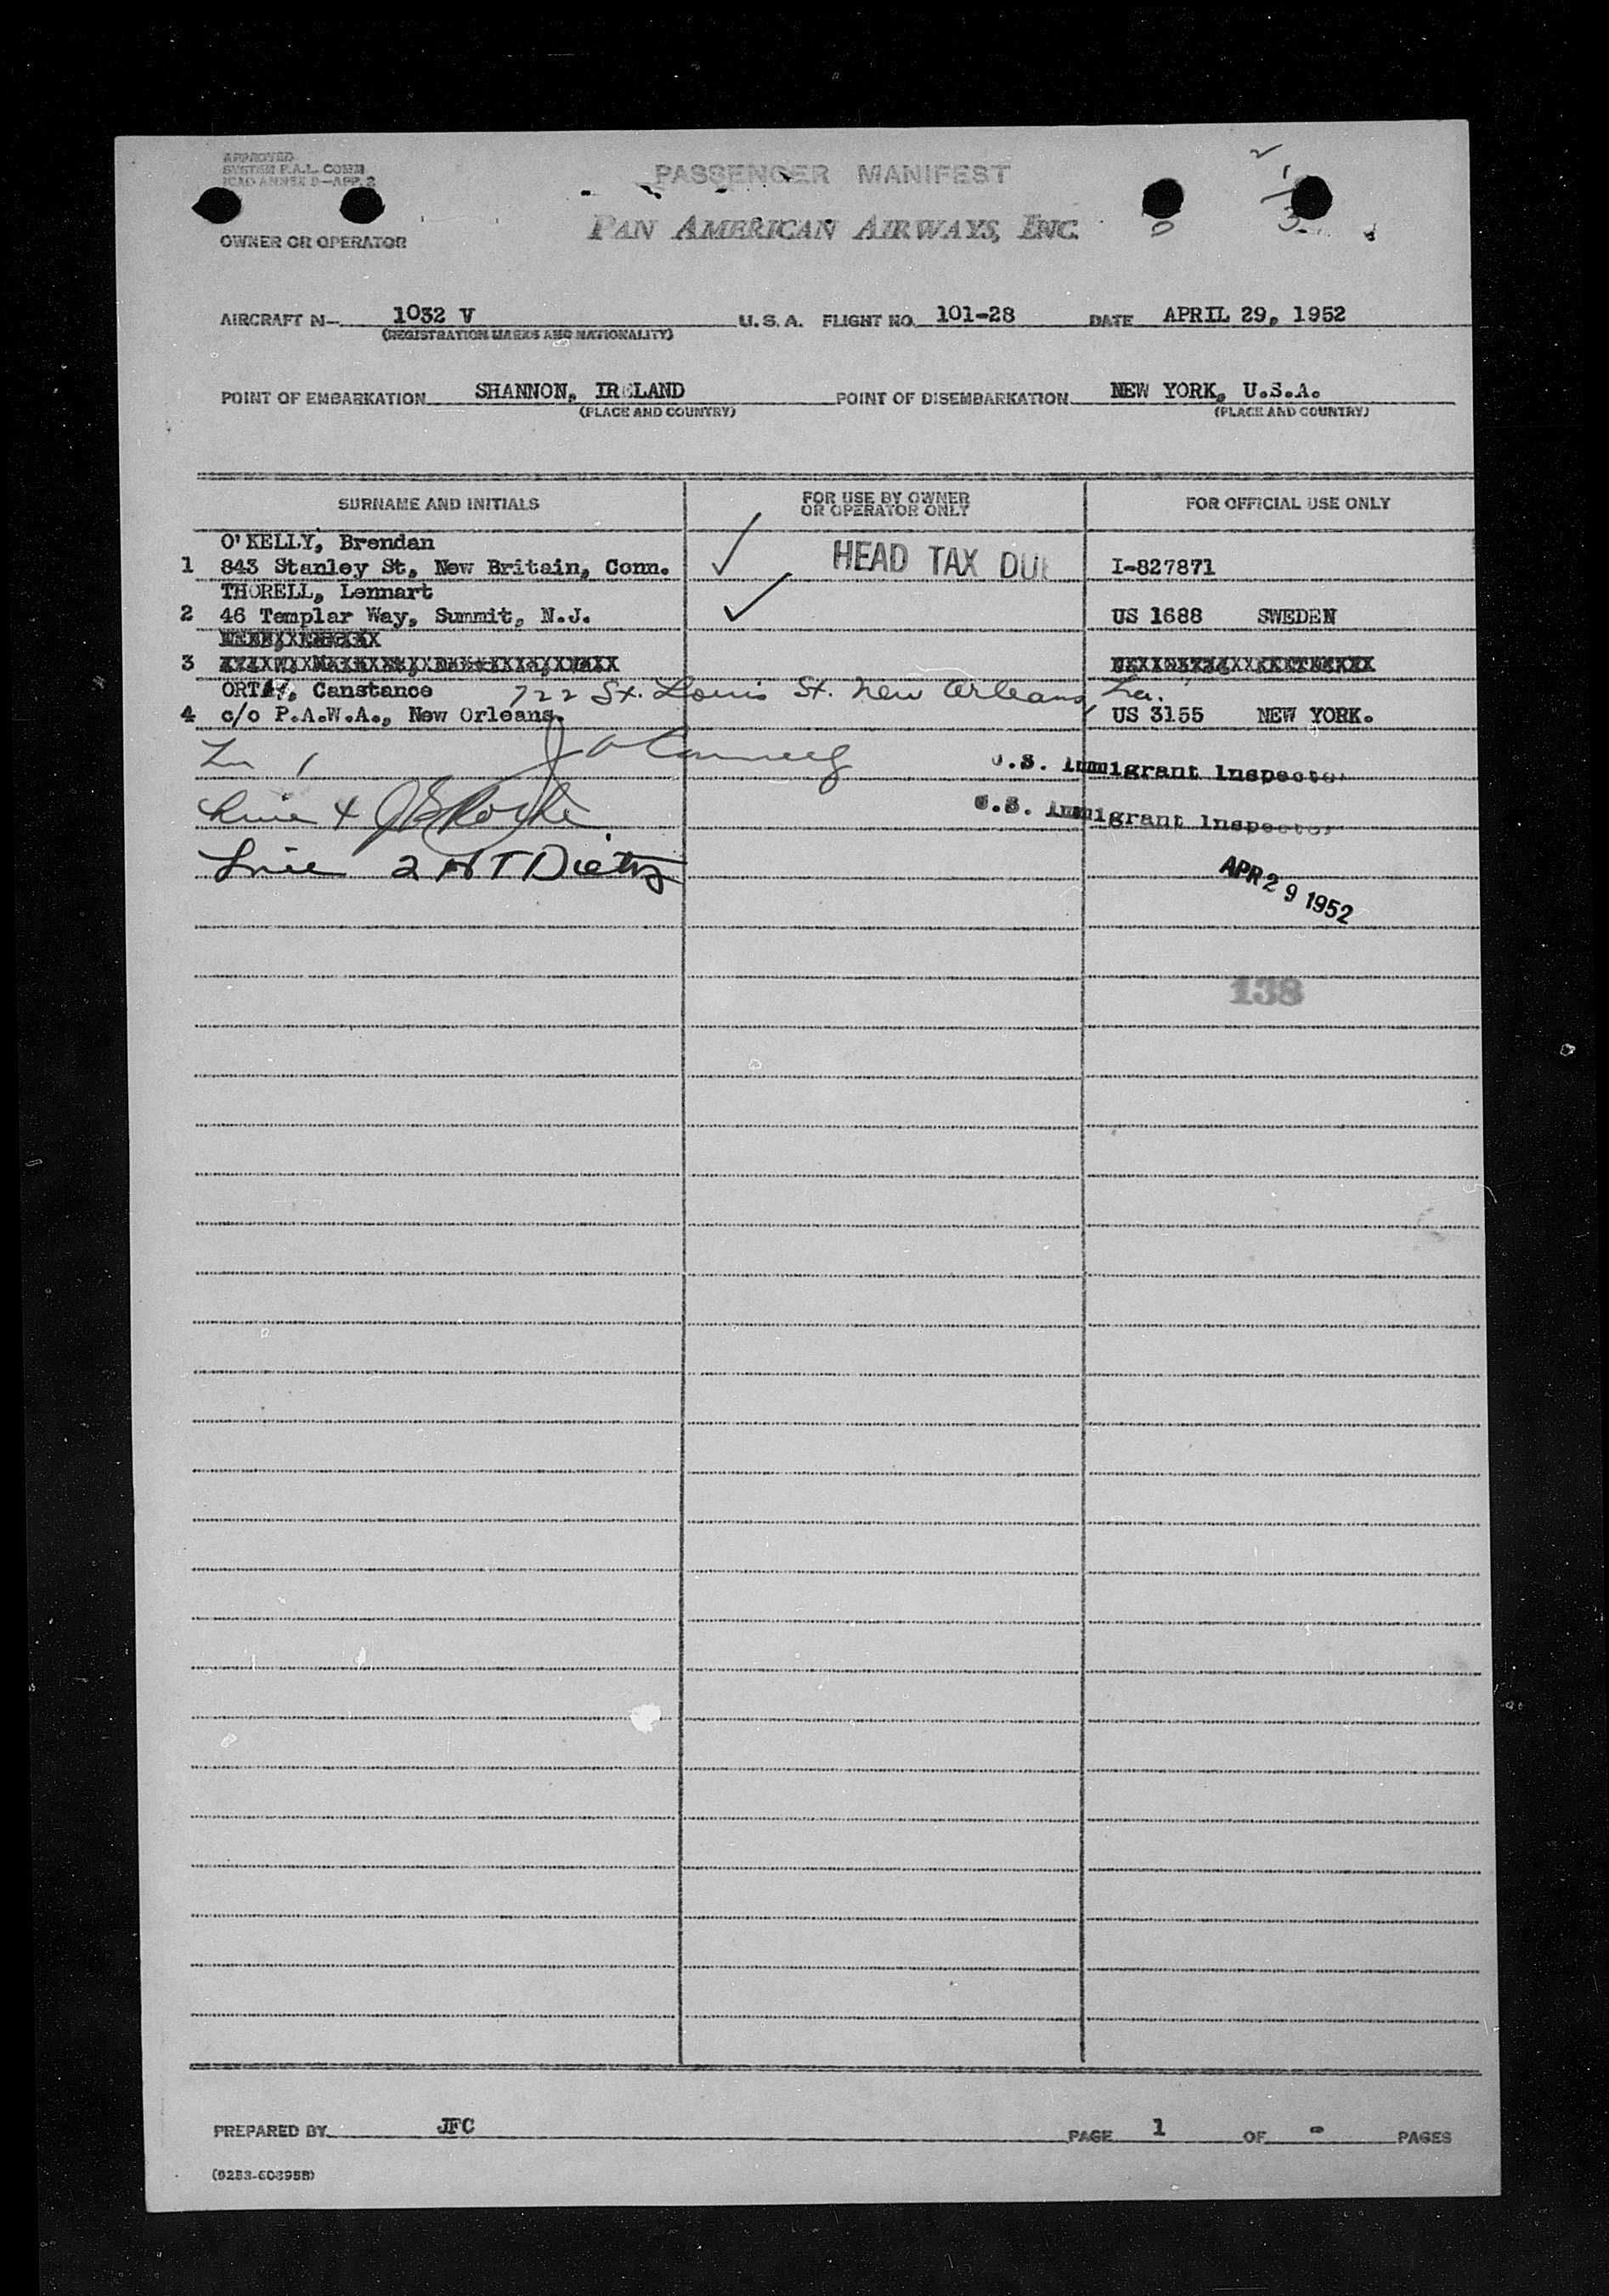 APPROVED
SYSTEM F.A.L. COMM
ICAO ANNEX 9—APP. 2
PASSENGER MANIFEST
OWNER OR OPERATOR
PAN AMERICAN AIRWAYS, INC.
AIRCRAFT N- 1032 V U.S.A. FLIGHT NO. 101-28 DATE APRIL 29, 1952
(REGISTRATION MARKS AND NATIONALITY)
POINT OF EMBARKATION SHANNON, IRELAND POINT OF DISEMBARKATION NEW YORK, U.S.A.
(PLACE AND COUNTRY) (PLACE AND COUNTRY)
SURNAME AND INITIALS FOR USE BY OWNER OR OPERATOR ONLY FOR OFFICIAL USE ONLY
O'KELLY, Brendan
1 843 Stanley St, New Britain, Conn. HEAD TAX DUE I-827871
THORELL, Lennart
2 46 Templar Way, Summit, N.J. US 1688 SWEDEN
3
Canstance 722 St. Louis St. New Orleans, La.
4 c/o P.A.W.A., New Orleans. US 3155 NEW YORK.
Ln 1 U.S. Immigrant Inspector
Line 4 U.S. Immigrant Inspector
Line 2 Dietz
APR 29 1952
138
PREPARED BY JFC PAGE 1 OF - PAGES